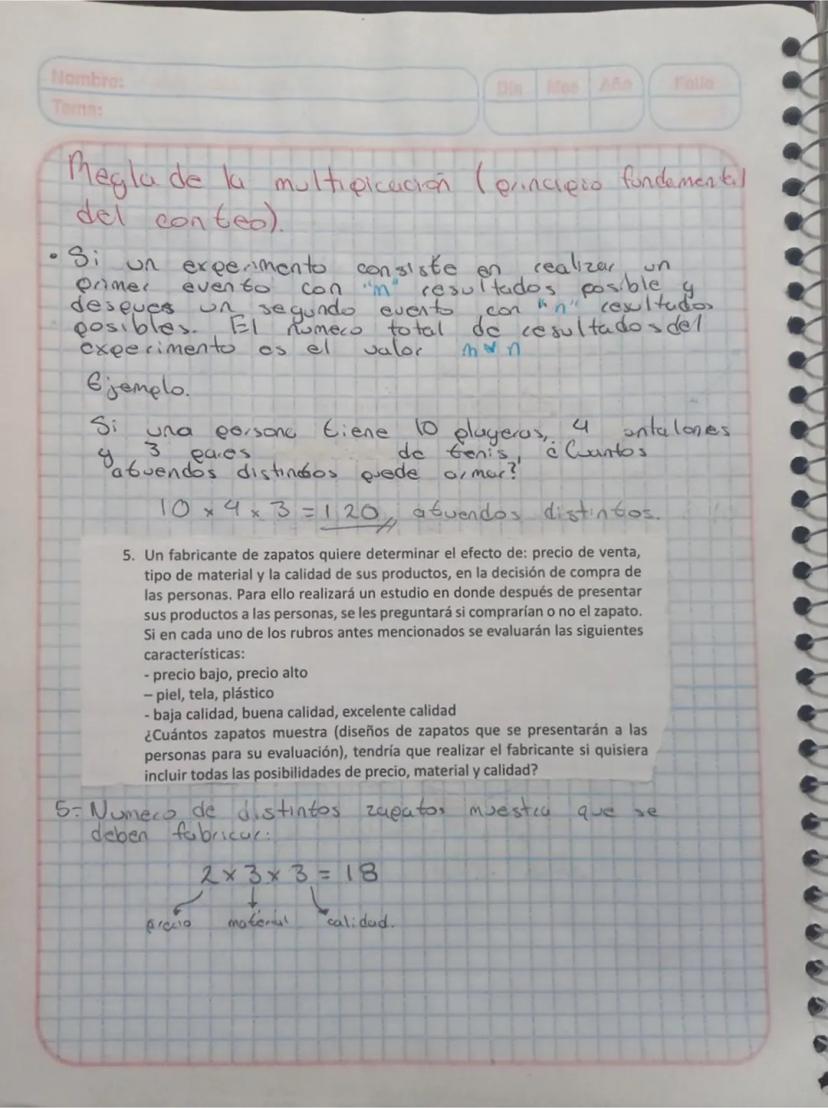 Nombre:
Tema:
Día Mes Año Folio
Regla de la multipicación (principio fundamental
del conteo).
• Si un experimento consiste en realizar un
primer evento con "m" resultados posible y
despues un segundo evento con "n" resultados
posibles. El numero total de resultados del
experimento es el valor m x n
Ejemplo.
Si una persona tiene 10 playeras, 4 antalones
y 3 pares de tenis, ¿Cuantos
atuendos distintos puede armar?
10 x 4 x 3 = 120, atuendos distintos.
5. Un fabricante de zapatos quiere determinar el efecto de: precio de venta,
tipo de material y la calidad de sus productos, en la decisión de compra de
las personas. Para ello realizará un estudio en donde después de presentar
sus productos a las personas, se les preguntará si comprarían o no el zapato.
Si en cada uno de los rubros antes mencionados se evaluarán las siguientes
características:
- precio bajo, precio alto
– piel, tela, plástico
- baja calidad, buena calidad, excelente calidad
¿Cuántos zapatos muestra (diseños de zapatos que se presentarán a las
personas para su evaluación), tendría que realizar el fabricante si quisiera
incluir todas las posibilidades de precio, material y calidad?
5.- Numero de distintos zapatos muestra que se
deben fabricar:
2 x 3 x 3 = 18
precio material calidad.